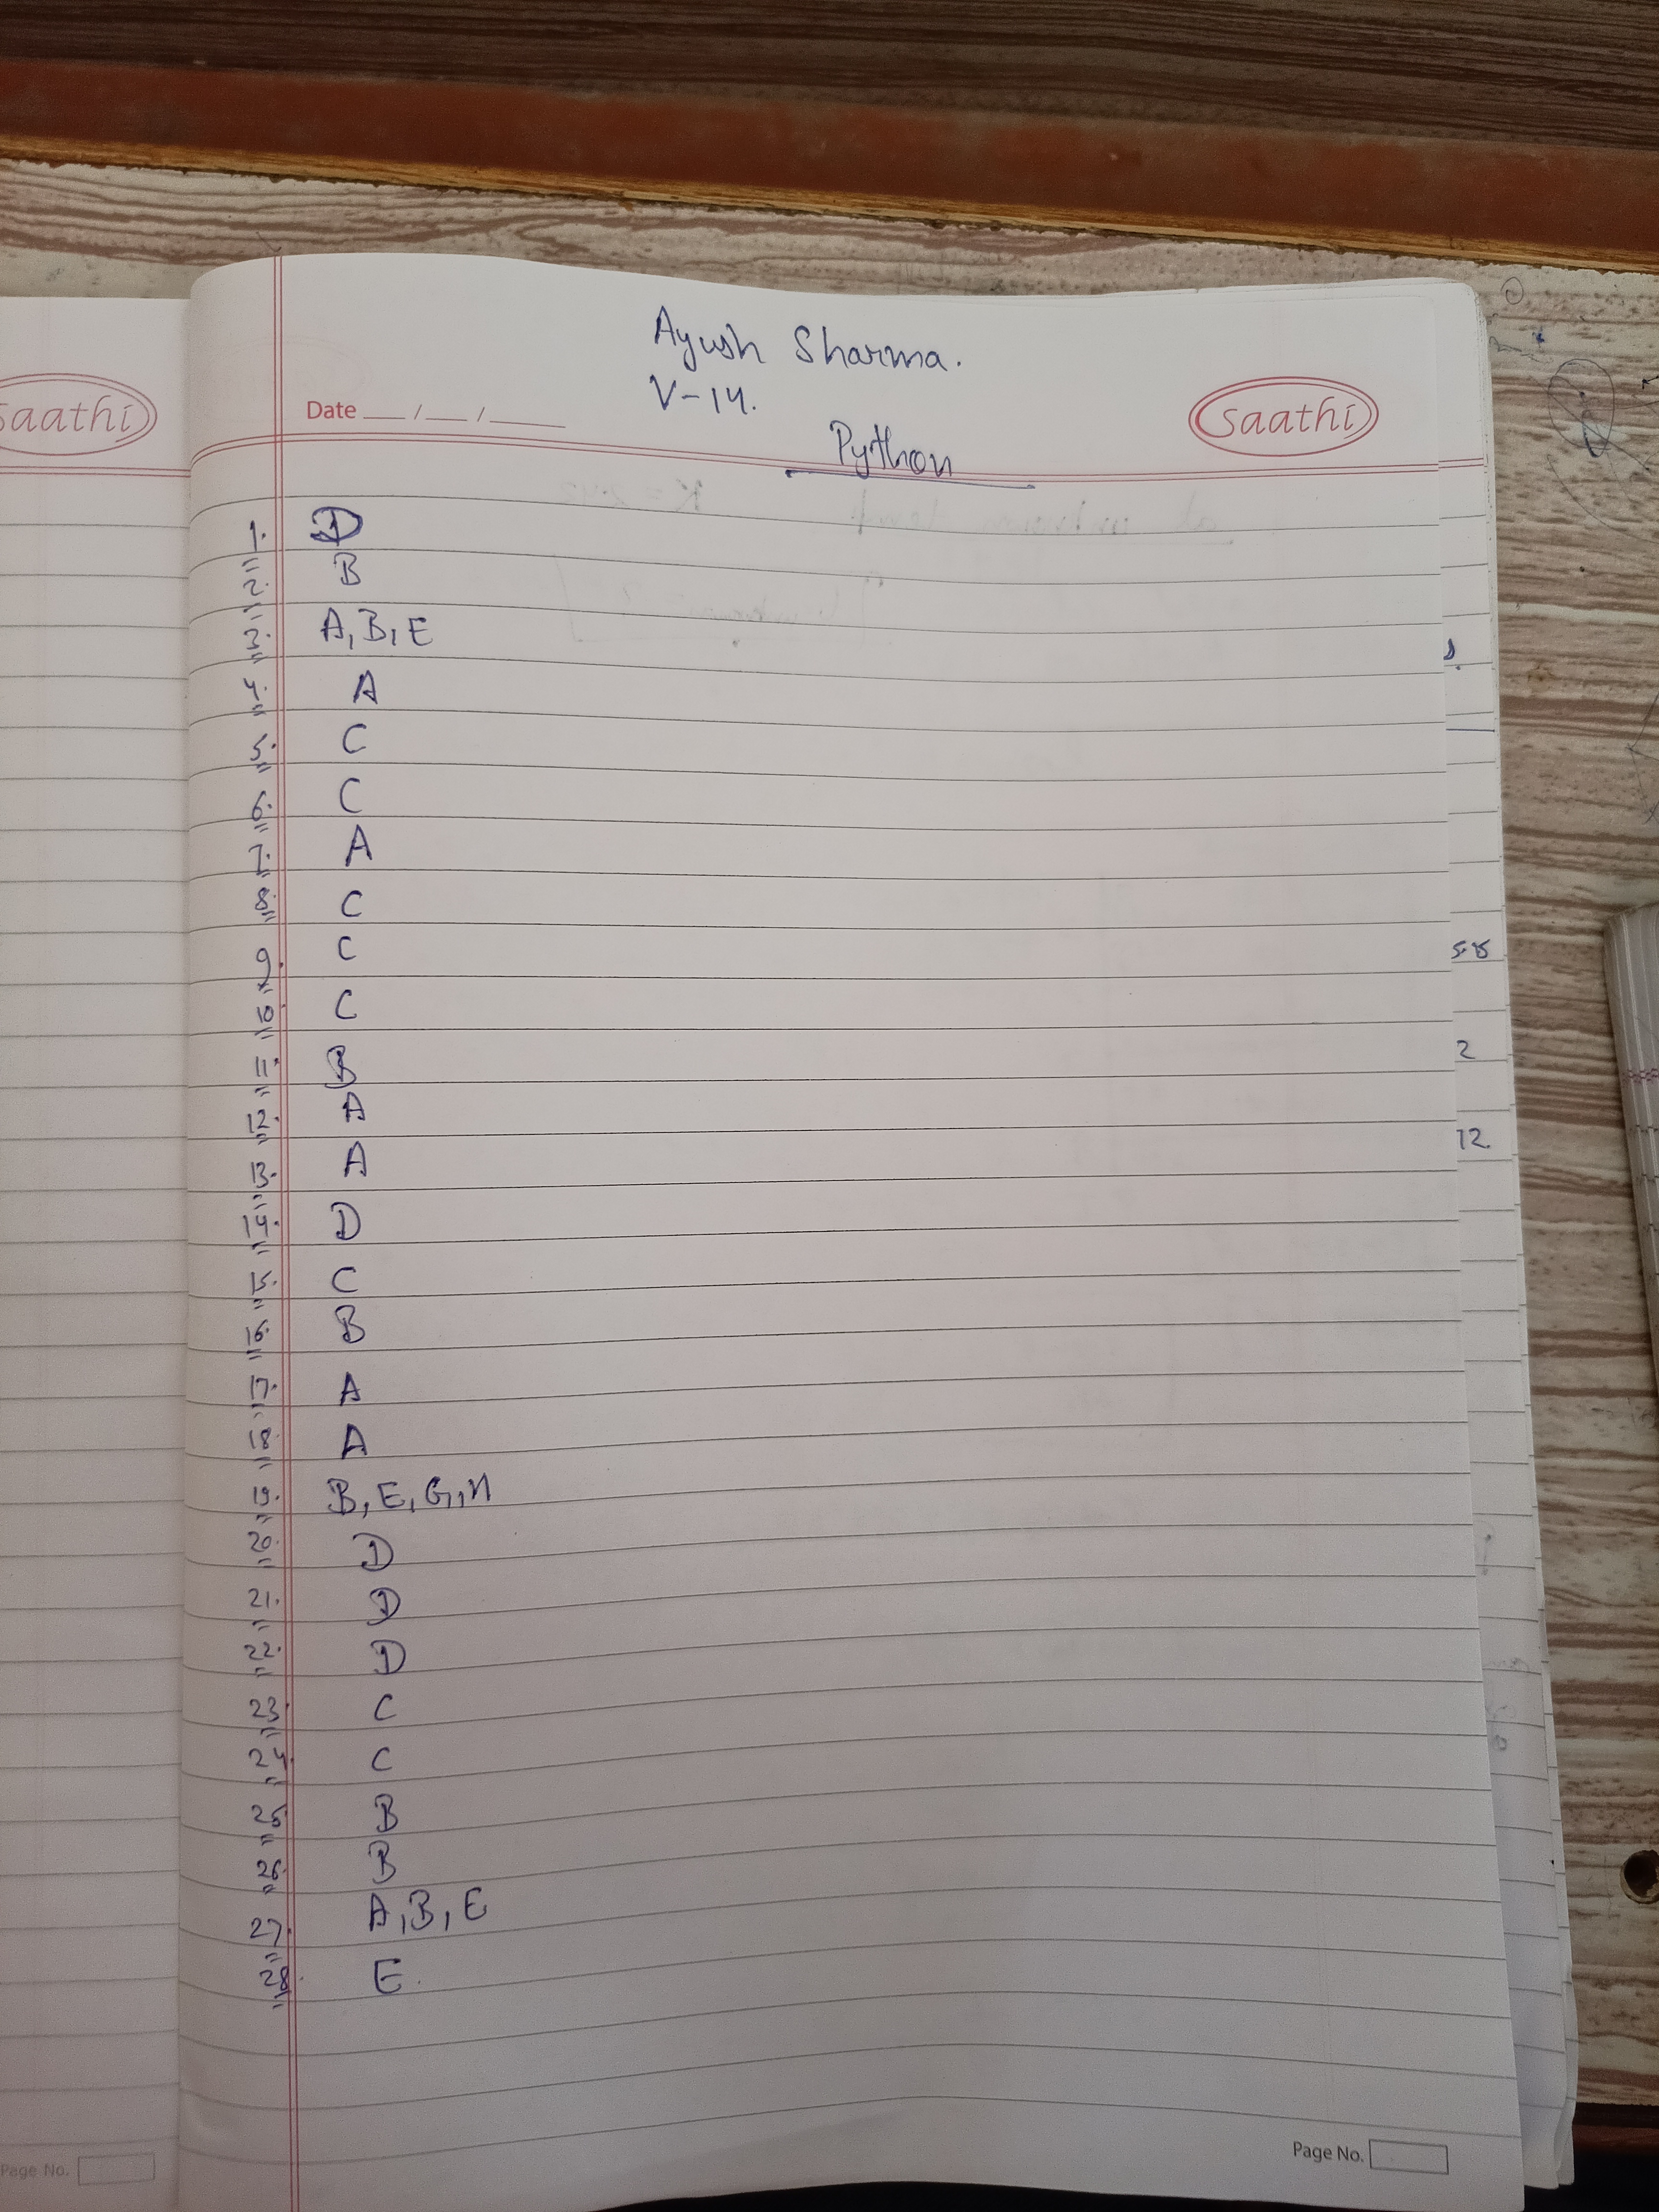 Ayush Sharma.
V-14.
saathi
Date __/__/____
saathi
Python
1. D
2. B
3. A, B, E
4. A
5. C
6. C
7. A
8. C
9. C
10. C
11. B
12. A
13. A
14. D
15. C
16. B
17. A
18. A
19. B, E, G, H
20. D
21. D
22. D
23. C
24. C
25. B
26. B
27. A, B, E
28. E
2
12
Page No.
Page No.